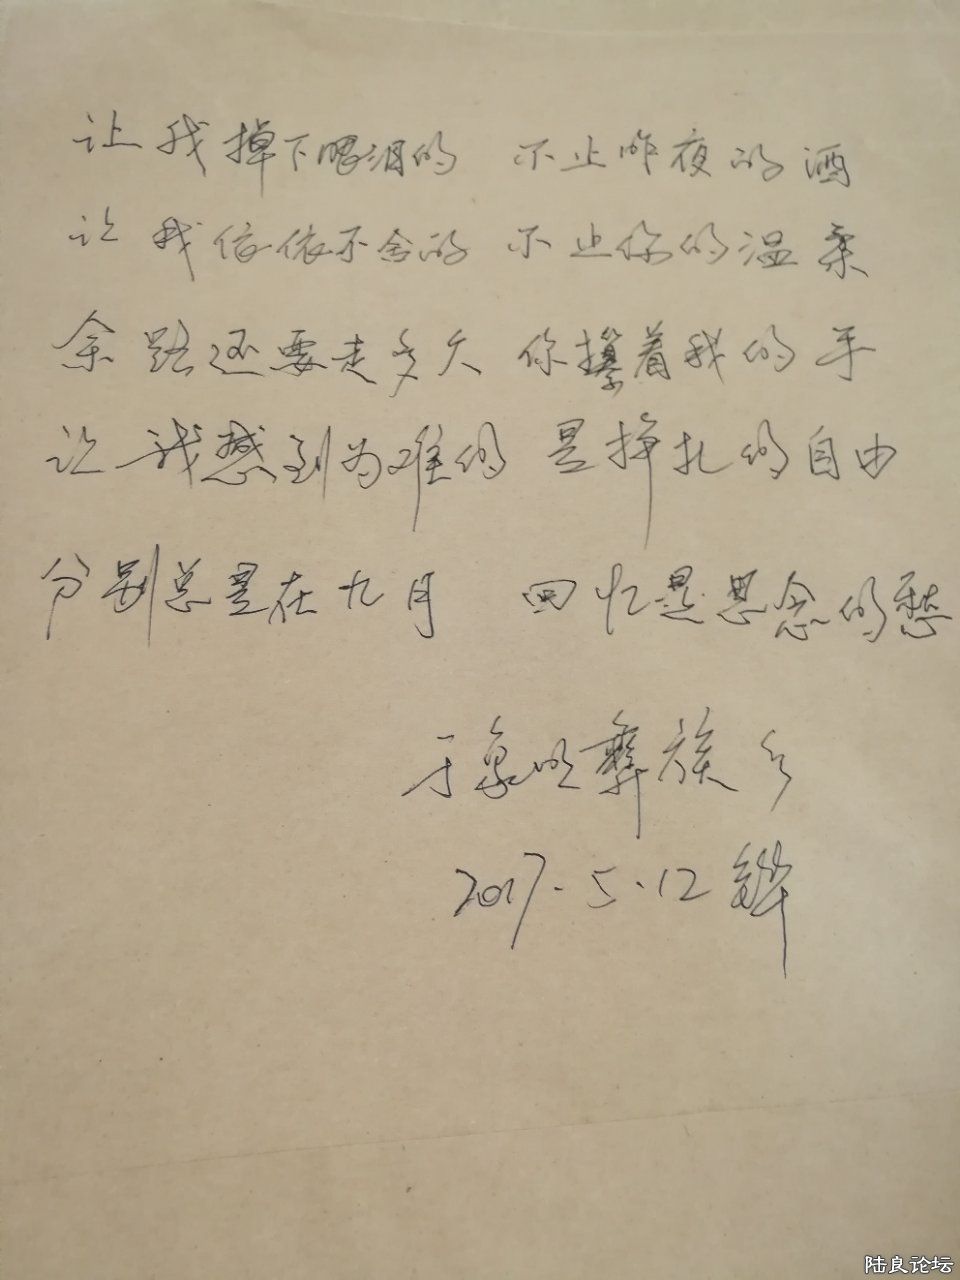 让我掉下眼泪的 不止昨夜的酒
让我依依不舍的 不止你的温柔
余路还要走多久 你攥着我的手
让我憾到为难的 是挣扎的自由
分别总是在九月 回忆是思念的愁
于彝族乡
2017.5.12
陆良论坛